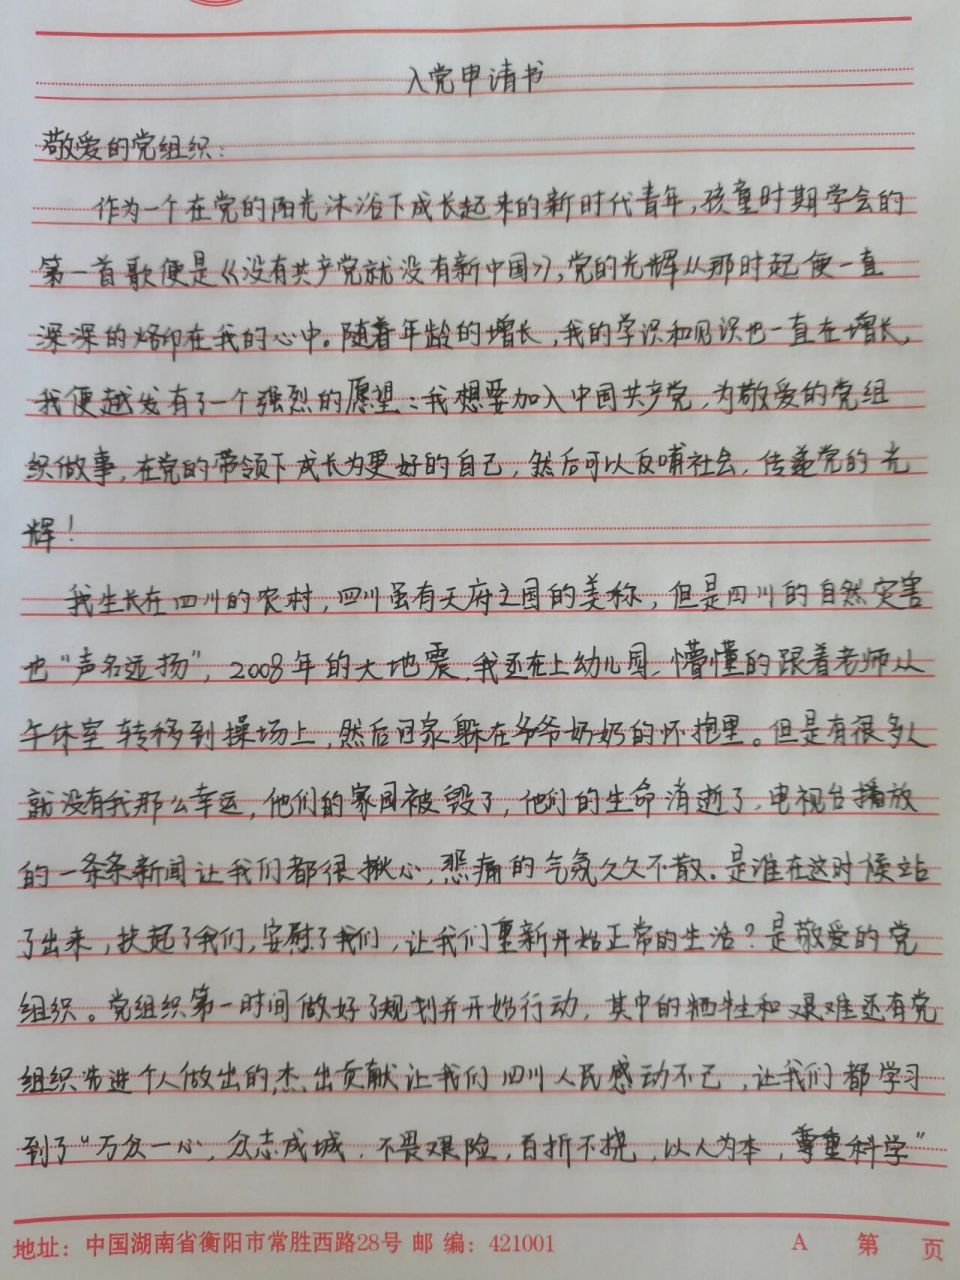 入党申请书
敬爱的党组织:
作为一个在党的阳光沐浴下成长起来的新时代青年,孩童时期学会的
第一首歌便是《没有共产党就没有新中国》,党的光辉从那时起便一直
深深的烙印在我的心中。随着年龄的增长,我的学识和见识也一直在增长,
我便越发有了一个强烈的愿望:我想要加入中国共产党,为敬爱的党组
织做事,在党的带领下成长为更好的自己,然后可以反哺社会,传递党的光
辉!
我生长在四川的农村,四川虽有天府之国的美称,但是四川的自然灾害
也“声名远扬”,2008年的大地震,我还在上幼儿园,懵懂的跟着老师从
午休室转移到操场上,然后回家躲在爷爷奶奶的怀抱里。但是有很多人
就没有我那么幸运,他们的家园被毁了,他们的生命消逝了,电视台播放
的一条条新闻让我们都很揪心,悲痛的气氛久久不散。是谁在这时候站
了出来,扶起了我们,安慰了我们,让我们重新开始正常的生活?是敬爱的党
组织。党组织第一时间做好了规划并开始行动,其中的牺牲和艰难还有党
组织先进个人做出的杰出贡献让我们四川人民感动不已,让我们都学习
到了“万众一心,众志成城,不畏艰险,百折不挠,以人为本,尊重科学”
地址:中国湖南省衡阳市常胜西路28号 邮编:421001 A 第 页